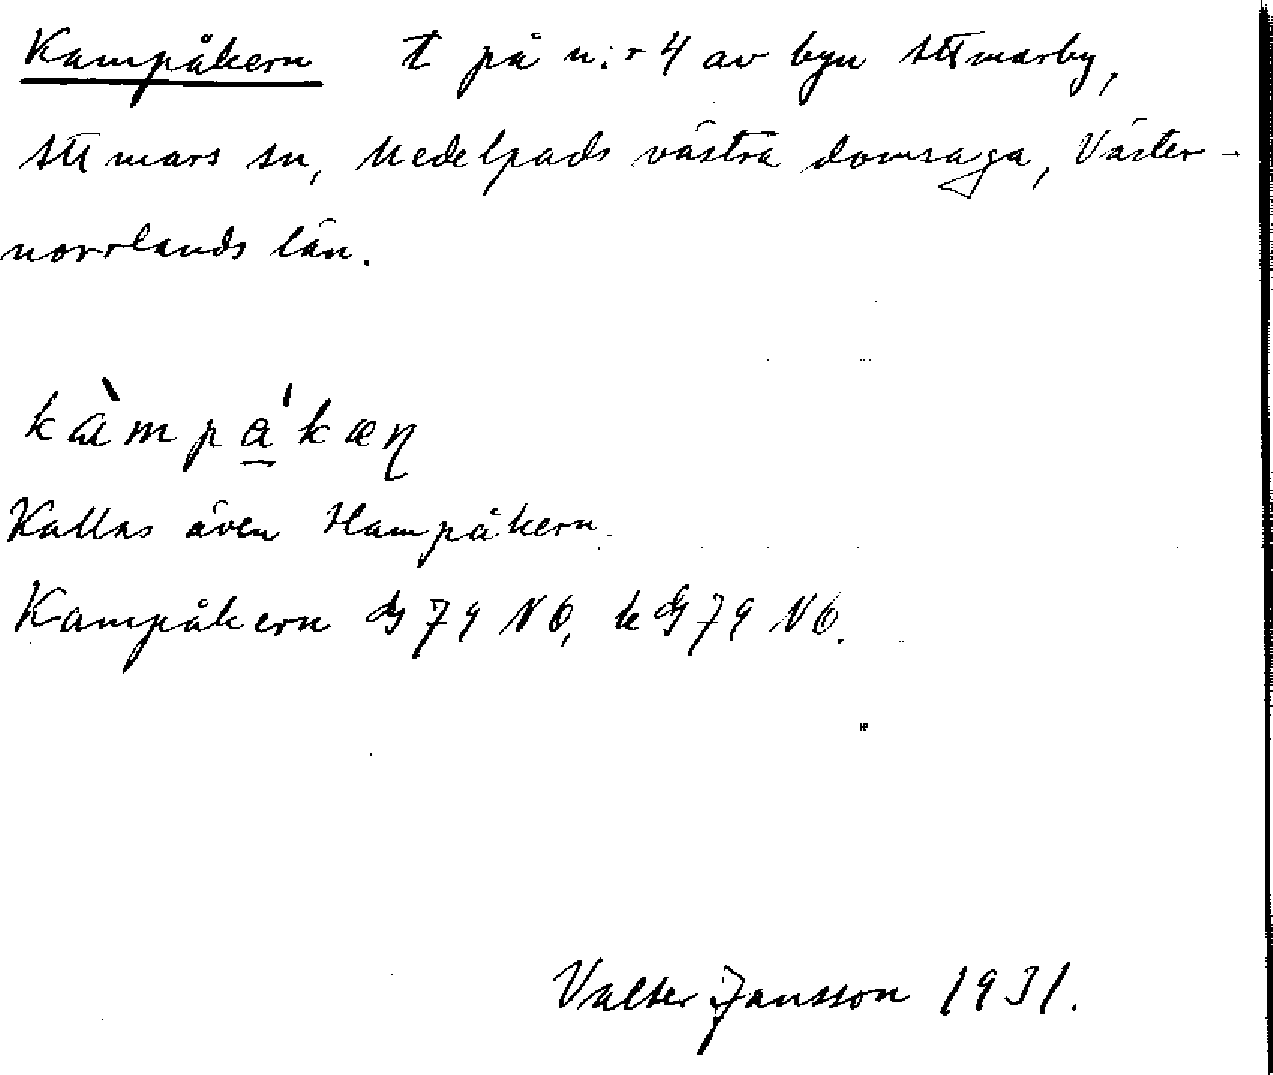 Kampåkern t på n:r 4 av byn Attmarby,
Attmars sn, Medelpads västra domsaga, Väster-
norrlands län.
kàmpa̲'kæɳ
Kallas även Hampåkern.
Kampåkern dG 79 N6, kG 79 N6.
Valter Jansson 1931.